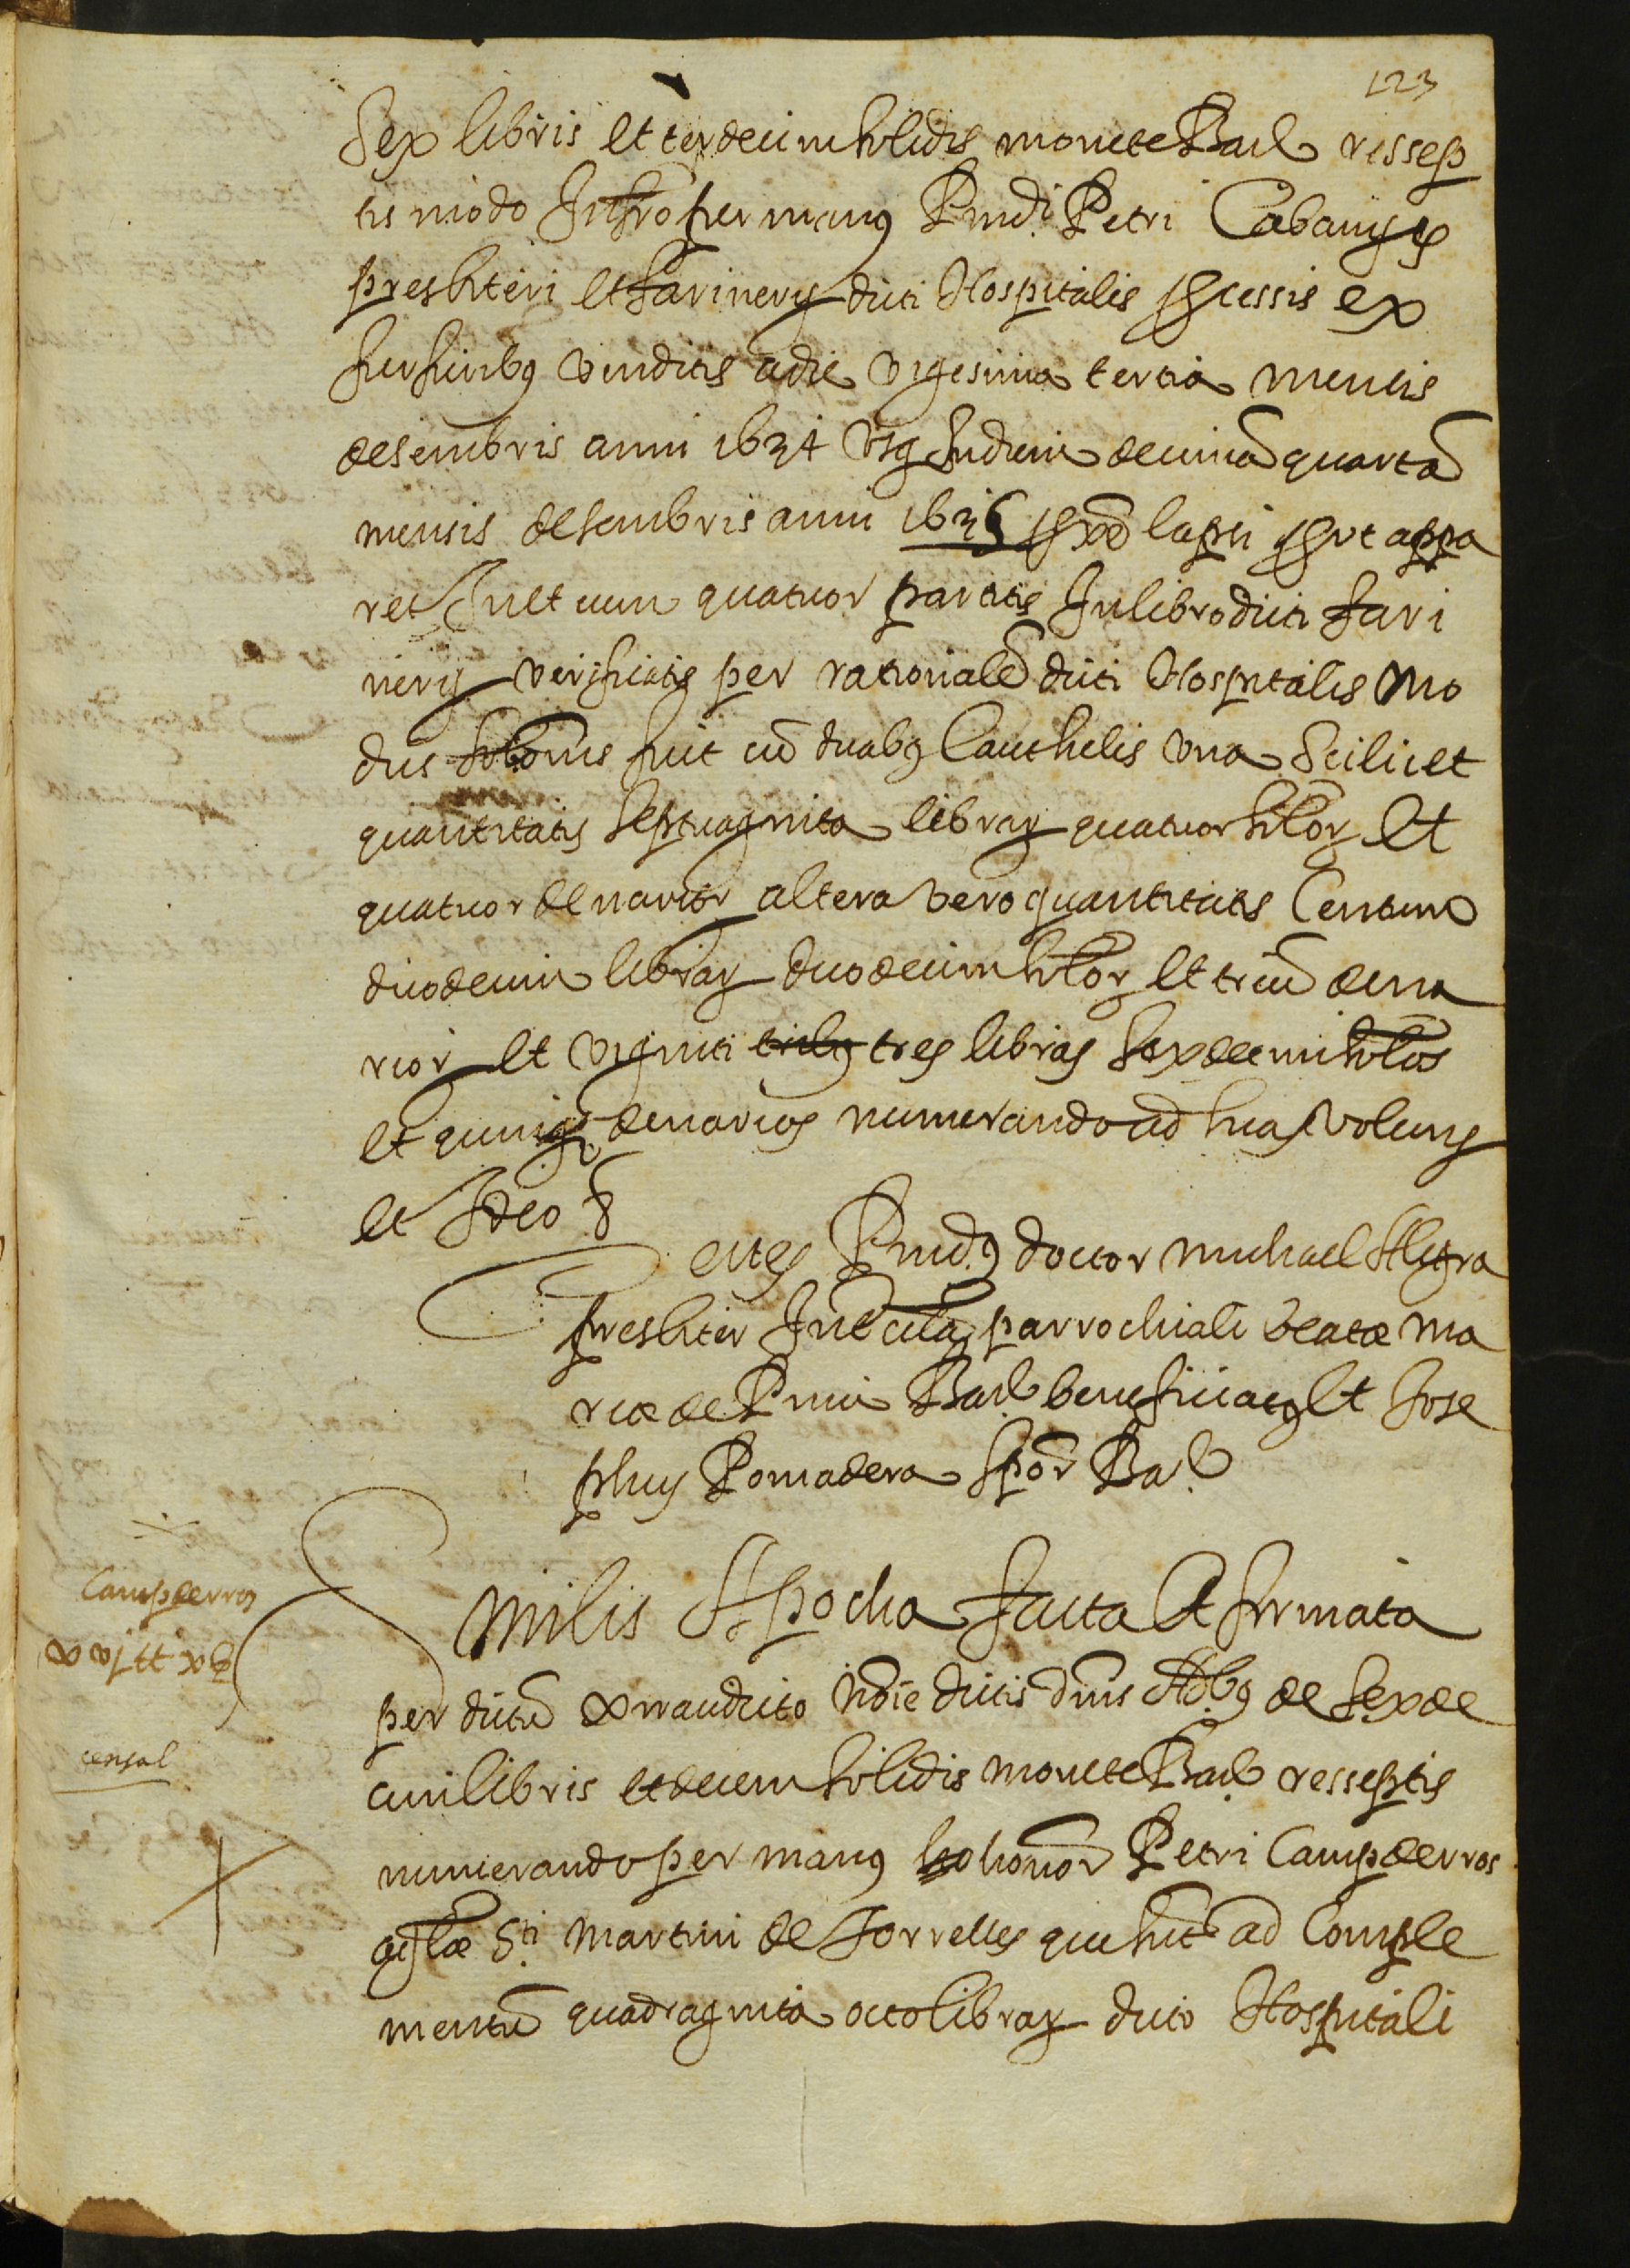 123
Sex libris et terdecim solidis monete Bar.e ressep
tis modo infro per manus Rnd.i Petri Cabanyes
presbiteri et farinerÿ dicti Hospitalis processis ex
furfuribus venditis a die vigesima tertia mensis
desembris anni 1634 usq. in diem decimã quartã
mensis desembris anni 1635 prox.e lapsi prout appa
ret in et cum quatuor partitis in libro dicti fari
nerÿ verificatis per rationalẽ dicti Hospitalis mo
dus sol.onis fuit cũ duabus Cauthelis una Scilicet
quantitatis septuaginta librar. quatuor solor. et
quatuor denarior. altera vero quantitatis Centum
duodecim librar. duodecim solor. et triũ dena
rior. et viginti tribus tres libras sexdecim solos
et quinq. denarios numerando ad suas voluns
et ideo &
Testes Rnd.s doctor michael Alegra
presbiter in eccla parrochiali beatæ ma
riæ de Pinu Bar.e beneficiatus et Jose
phus Pomadera scpor. Bar.e
Campderros
xvj ll x s
censal
Similis Apocha facta et firmata
per dictũ exnaudito hodie dictis dnis Adbus de sexde
cim libris et decem solidis monete Bar.e resseptis
numerando per manus ho honor. Petri Campderros
agllæ S.ti Martini de Torrelles que sut ad Comple
mentũ quadraginta octo librar. dicto Hospitali